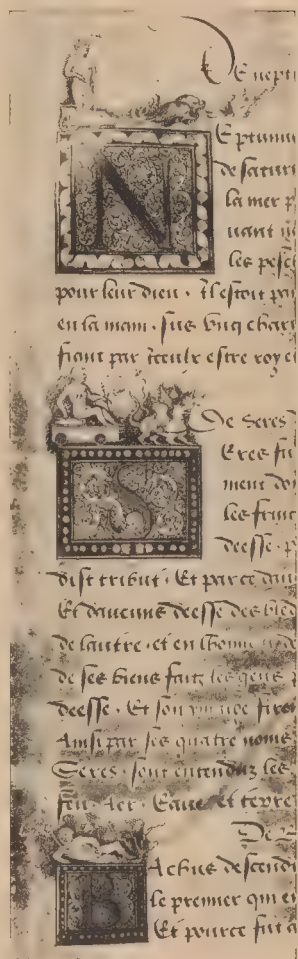 De nept
N
Eptunus
de satur
la mer p
uant
les pesc
pour leur dieu . il estoit
en la main . sus vng char
fiant par icelle estre roy
De Seres
S
Eres fu
ment don
les fruic
deesse . p
dist tribut . Et parce dau
Et daucuns deesse des bled
de lautre . et en lhonn
de ses biens faitz les gens p
deesse . Et son firet
Ainsi par ses quatre noms
Seres . sont entenduz les
feu . Aer . Eaue . et terre
De
B
Achus descendi
le premier qui
Et pource fut